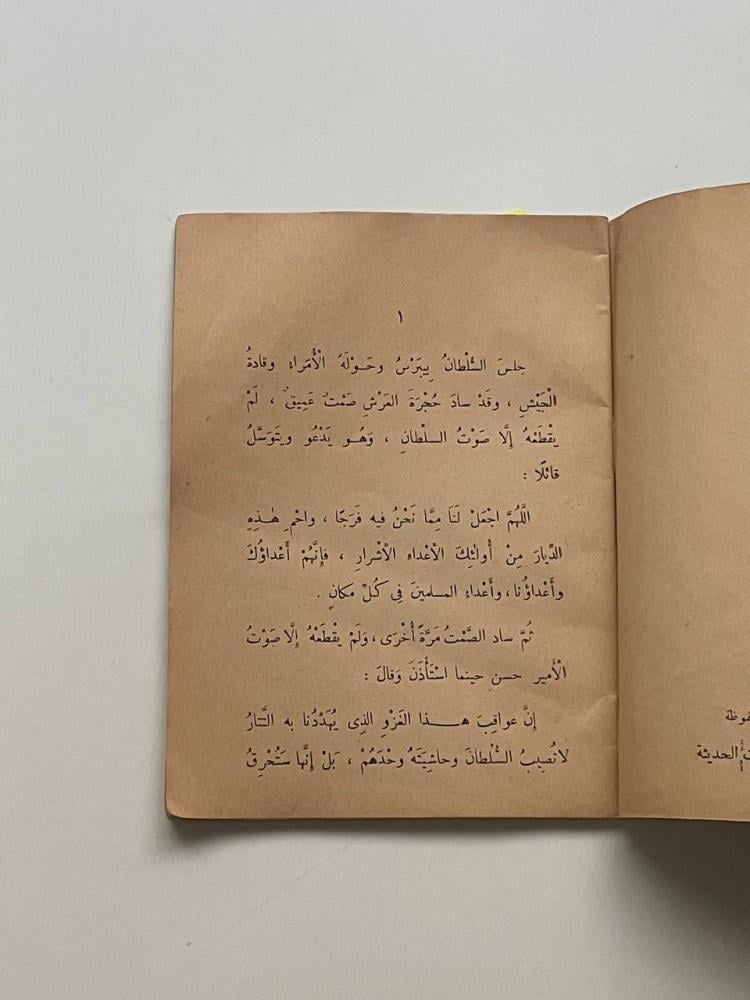 ١
جلسَ السُّلْطانُ بِيبَرْسُ وحَوْلَهُ الْأُمَراءُ وقادةُ
الْجَيْشِ ، وقَدْ سادَ حُجْرَةَ العَرْشِ صَمْتٌ عَمِيقٌ ، لَمْ
يقْطَعْهُ إلَّا صَوْتُ السلْطانِ ، وَهُو يَدْعُو ويَتَوَسَّلُ
قائلًا :
اللَّهُمَّ اجْعَلْ لنَا مِمَّا نَحْنُ فيه فَرَجًا ، واحْمِ هٰذِهِ
الدِّيارَ مِنْ أُولئِكَ الأعْداء الأشْرارِ ، فإنَّهُمْ أَعْداؤُكَ
وأَعْداؤُنا ، وأَعْداءُ المسلمينَ فِى كُلِّ مَكانٍ .
ثُمَّ ساد الصَّمْتُ مَرَّةً أُخْرَى ، وَلَمْ يقْطَعْهُ إلَّا صَوْتُ
الْأَمير حسنٍ حينما اسْتَأْذَنَ وَقالَ :
إنَّ عواقِبَ هذا الغَزْوِ الذِى يُهَدِّدُنا به التَّتارُ
لاتُصِيبُ السُّلْطانَ وحاشِيَتَهُ وحْدَهُمْ ، بَلْ إنَّها سَتُحْرِقُ
الحديثة